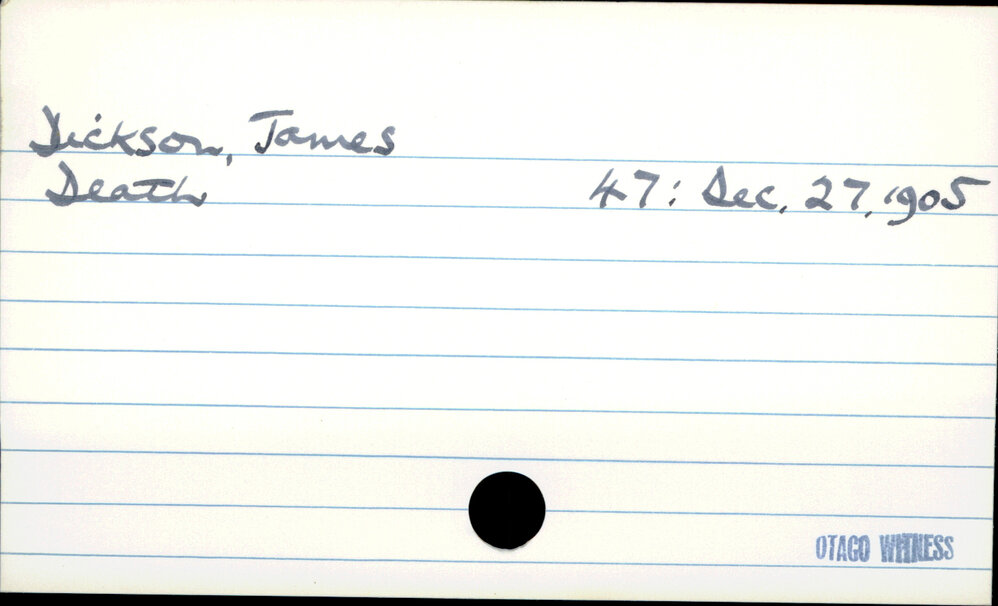 Dickson, James
Death 47: Dec. 27, 1905
OTAGO WITNESS